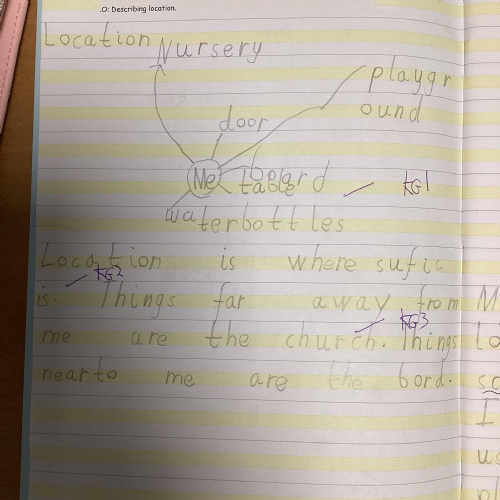 .O: Describing location.
Location
Nursery
playgr
ound
door
board
Me
table
KG1
waterbottles
Location is where sufic
KG2
is. Things far away from
KG3
me are the church. Things
near to me are the bord.
M
Lo
so
I
us
pl